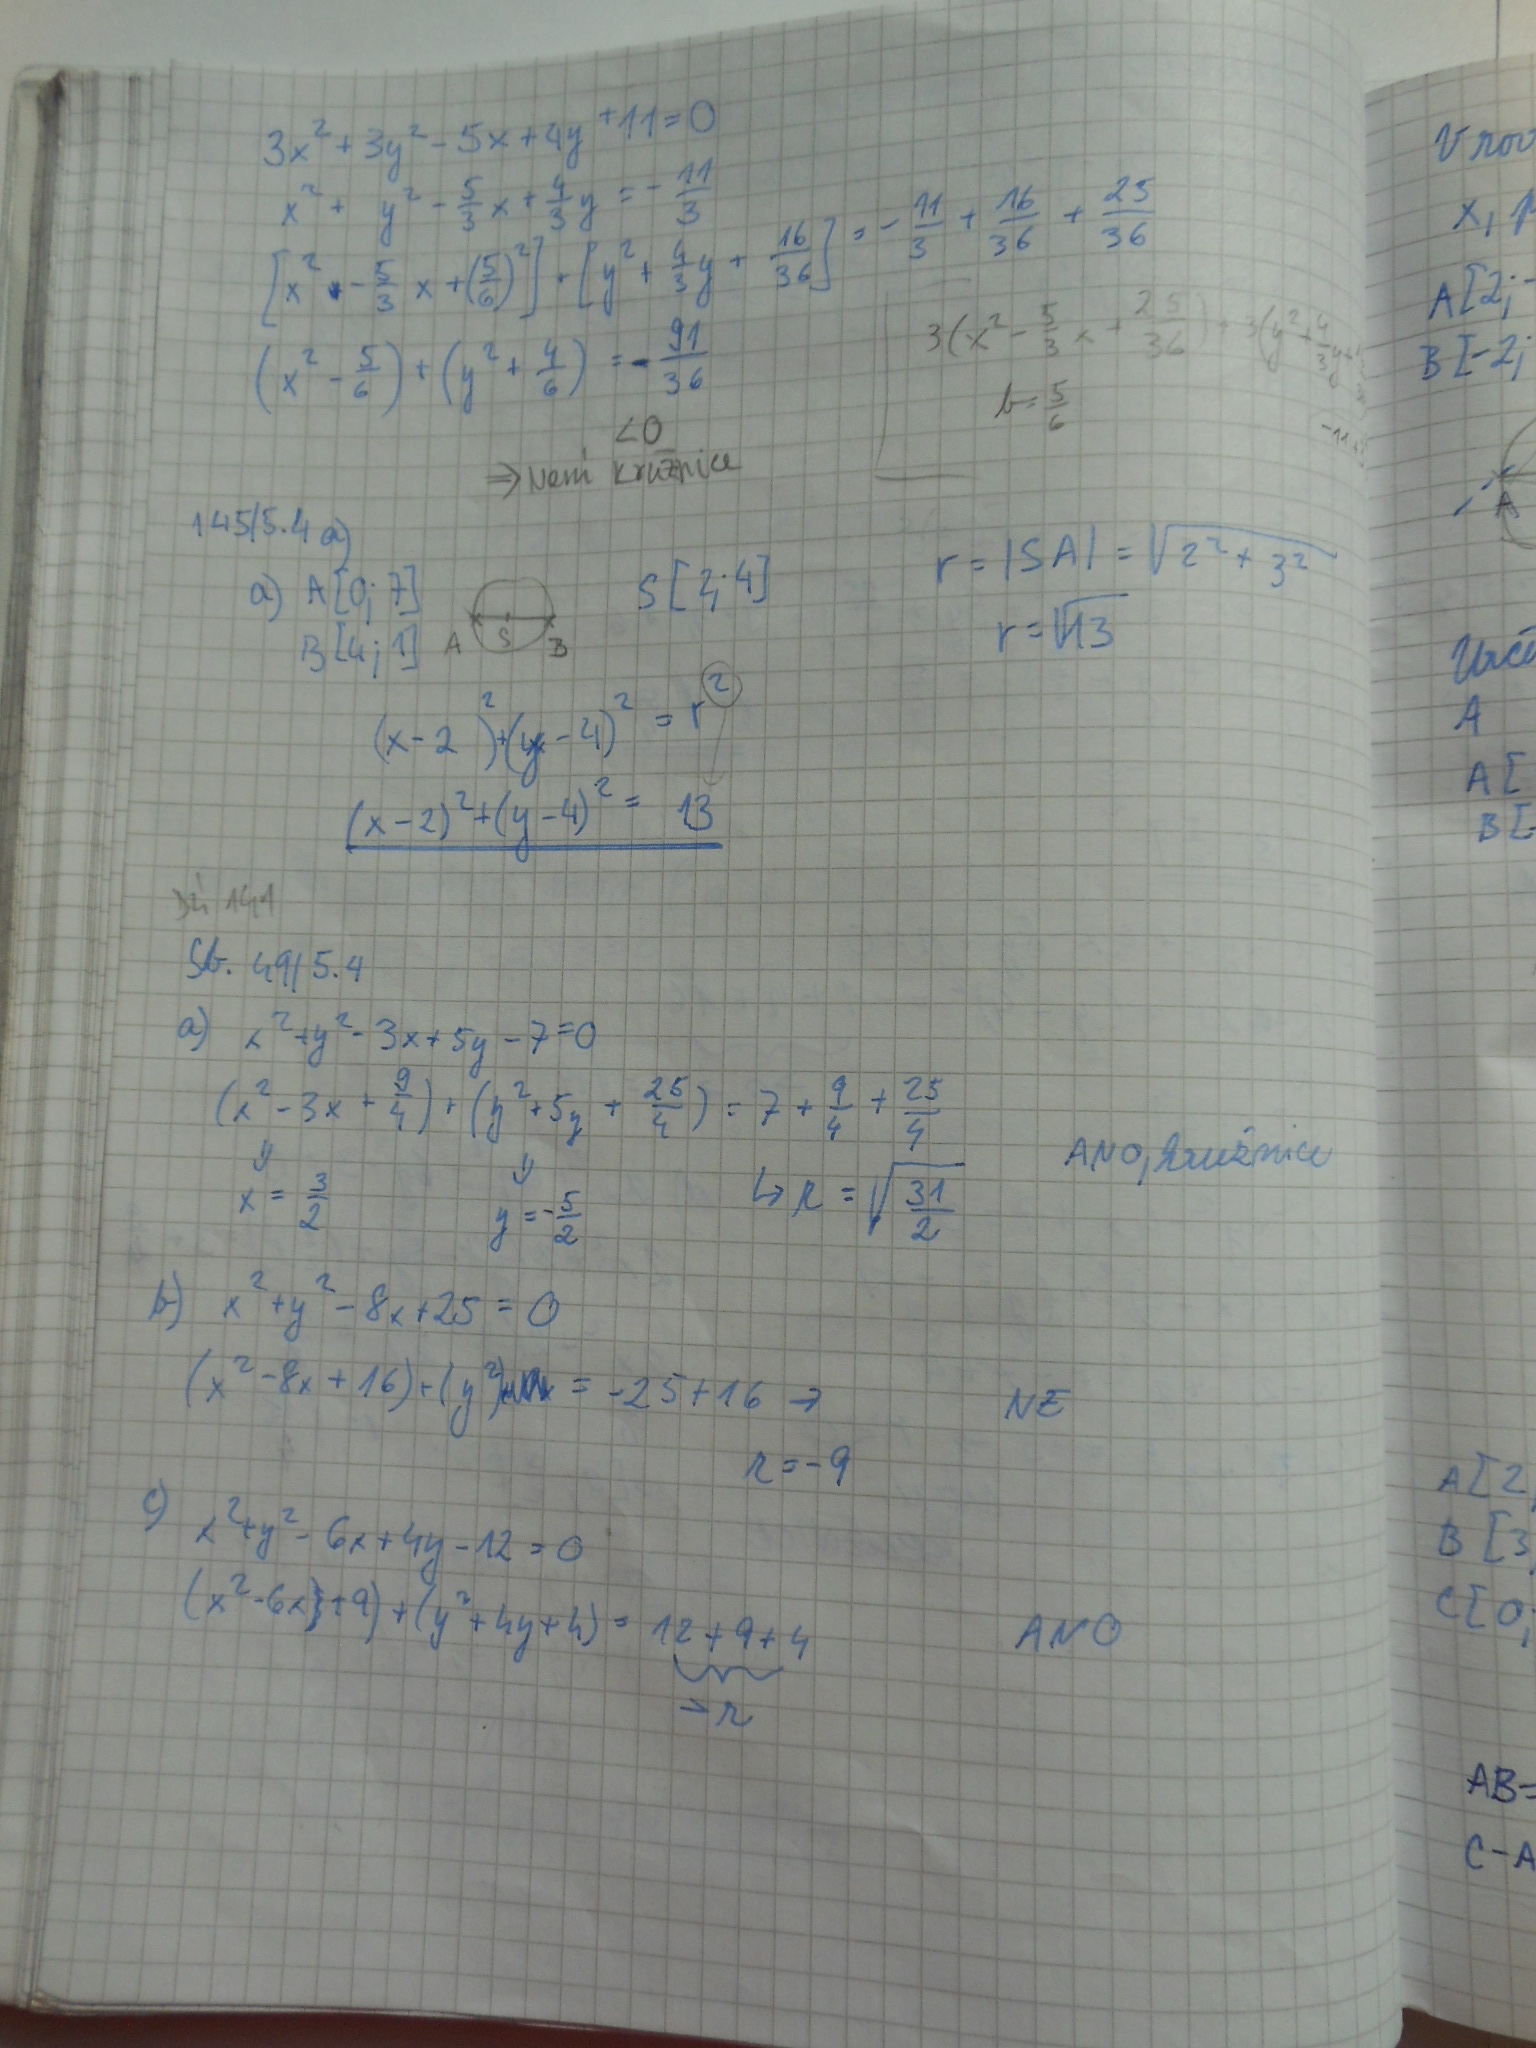 3x² + 3y² - 5x + 4y + 11 = 0
x² + y² - 5/3 x + 4/3 y = - 11/3
[x² - 5/3 x + (5/6)²] + [y² + 4/3 y + 16/36] = - 11/3 + 16/36 + 25/36
(x² - 5/6) + (y² + 4/6) = - 91/36
3(x² - 5/3 x + 25/36) + 3(y² + 4/3 y +
b = 5/6
-11+
< 0
⇒ Není kružnice
145/5.4 a)
a) A[0; 7]
B[4; 1]
A S B
S[2; 4]
r = |SA| = √(2² + 3²)
r = √13
(x - 2)² + (y - 4)² = r²
(x - 2)² + (y - 4)² = 13
DÚ 14.1
Sb. 49/5.4
a) x² + y² - 3x + 5y - 7 = 0
(x² - 3x + 9/4) + (y² + 5y + 25/4) = 7 + 9/4 + 25/4
x = 3/2
y = -5/2
↳ r = √(31/2)
ANO, kružnice
b) x² + y² - 8x + 25 = 0
(x² - 8x + 16) + (y²) = -25 + 16 →
NE
r = -9
c) x² + y² - 6x + 4y - 12 = 0
(x² - 6x + 9) + (y² + 4y + 4) = 12 + 9 + 4
ANO
→ r
V rov
x, p
A[2; -
B[-2;
A
A
A[
B[-
A[2,
B[3
C[0,
AB=
C-A